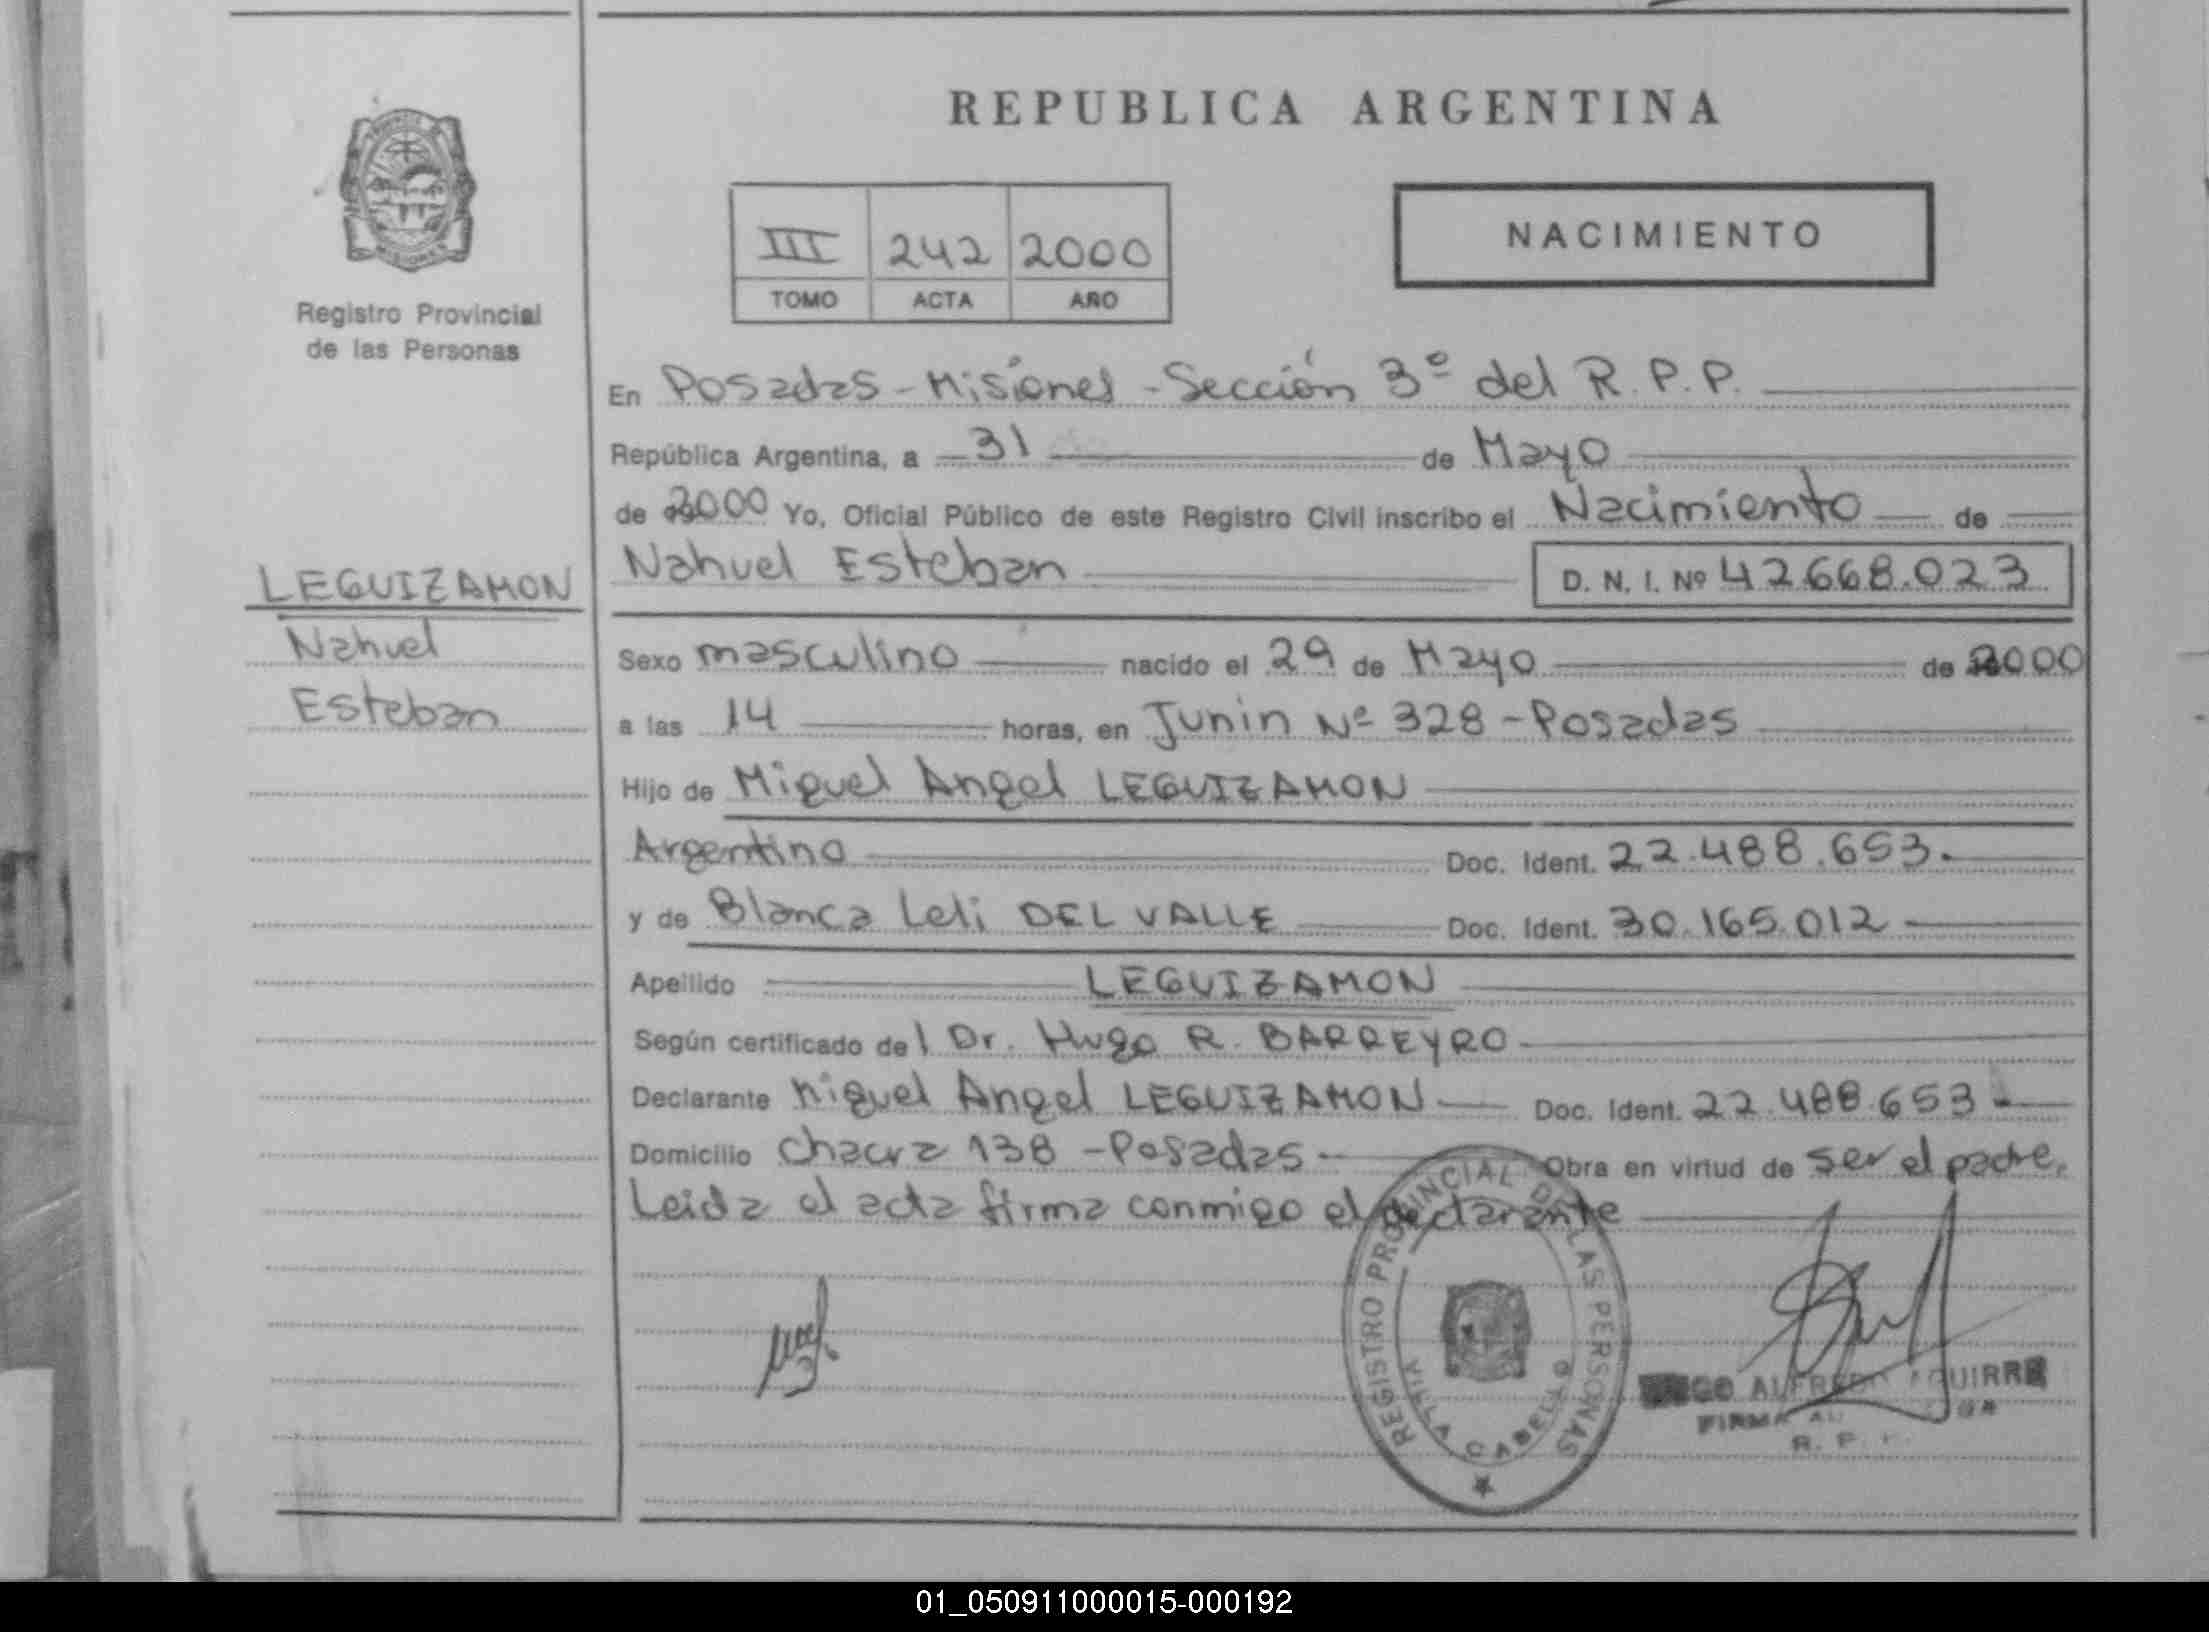 REPUBLICA ARGENTINA
NACIMIENTO
III 242 2000
TOMO ACTA AÑO
Registro Provincial
de las Personas
En Posadas - Misiones - Sección 3º del R.P.P.
República Argentina, a 31 de Mayo
de 2000 Yo, Oficial Público de este Registro Civil inscribo el Nacimiento de
Nahuel Esteban D. N. I. Nº 42.668.023
LEGUIZAMON
Nahuel
Esteban
Sexo masculino nacido el 29 de Mayo de 2000
a las 14 horas, en Junin Nº 328 - Posadas
Hijo de Miguel Angel LEGUIZAMON
Argentino Doc. Ident. 22.488.653.
y de Blanca Leli DEL VALLE Doc. Ident. 30.165.012
Apellido LEGUIZAMON
Según certificado del Dr. Hugo R. BARREYRO
Declarante Miguel Angel LEGUIZAMON Doc. Ident. 22.488.653
Domicilio Chacra 138 - Posadas Obra en virtud de ser el padre.
Leida el acta firma conmigo el declarante
REGISTRO PROVINCIAL DE LAS PERSONAS
VILLA CABELLO
ALFREDO AGUIRRE
FIRMA
R. P.
01_050911000015-000192